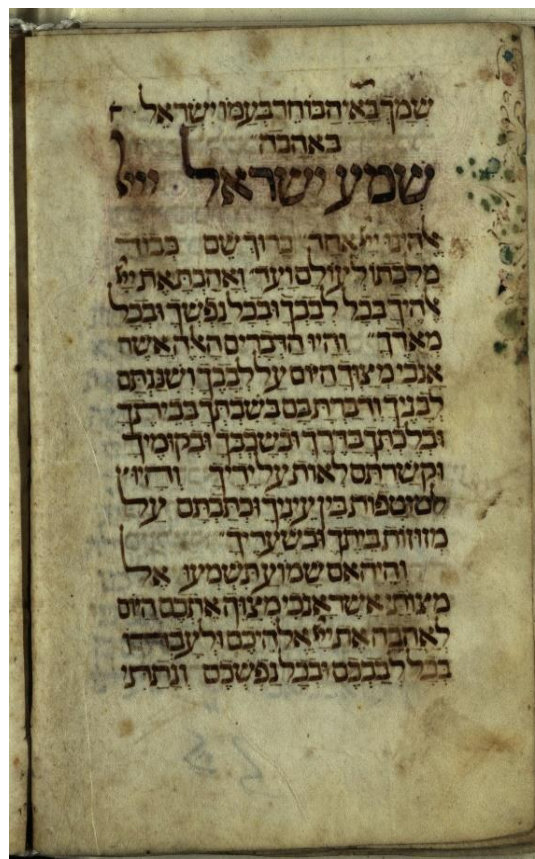 שמך באי הבוחר בעמו ישראל
באהבה
שמע ישראל ייי
אלהינו ייי אחד ברוך שם כבוד
מלכותו לעולם ועד ואהבת את ייי
אלהיך בכל לבבך ובכל נפשך ובכל
מאדך והיו הדברים האלה אשר
אנכי מצוך היום על לבבך ושננתם
לבניך ודברת בם בשבתך בביתך
ובלכתך בדרך ובשכבך ובקומיך
וקשרתם לאות על ידיך והיו
לטוטפות בין עיניך וכתבתם על
מזוזות ביתך ובשעריך
והיה אם שמוע תשמעו אל
מצותי אשר אנכי מצוה אתכם היום
לאהבה את ייי אלהיכם ולעבודו
בכל לבבכם ובכל נפשכם ונתתי